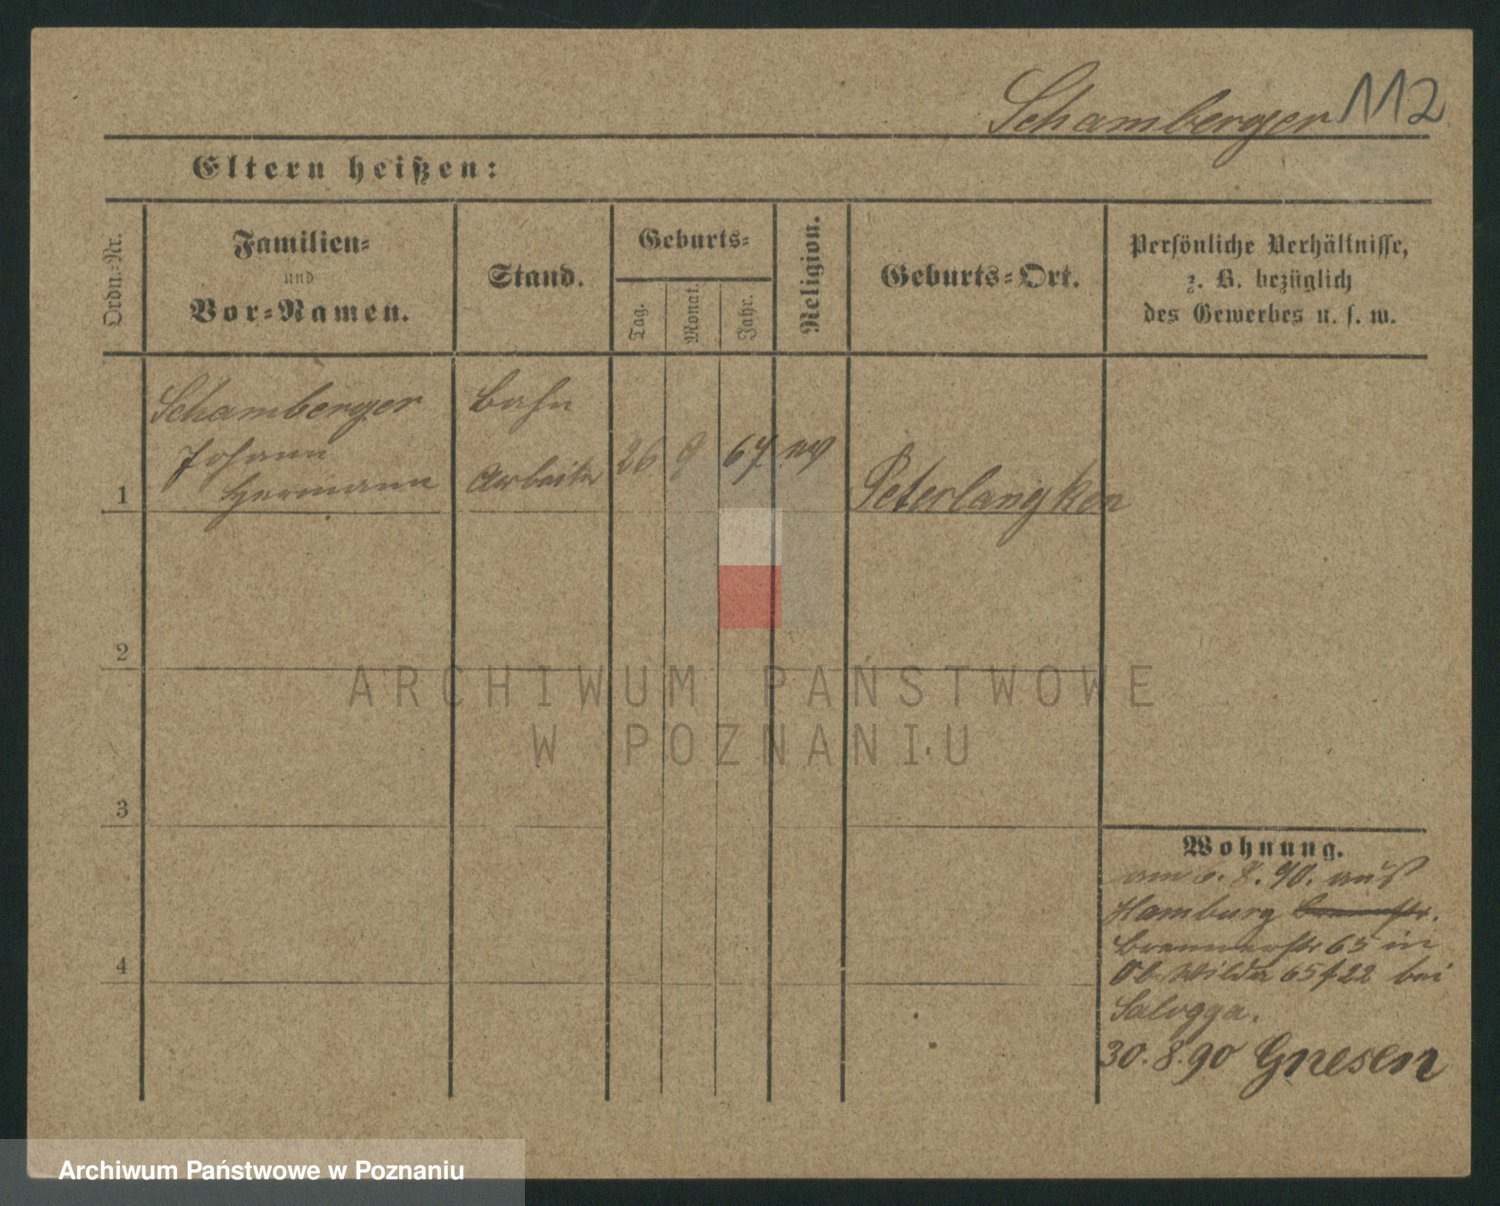 Schamberger 112
Eltern heißen:
Ordn.-Nr.
Familien-
und
Vor-Namen.
Stand.
Geburts-
Tag.
Monat.
Jahr.
Religion.
Geburts-Ort.
Persönliche Verhältnisse,
z. B. bezüglich
des Gewerbes u. s. w.
Schamberger Bahn
Johann
Hermann Arbeiter 26 9 67 Peterlangken
1
2
3
4
Wohnung.
am 6. 8. 90. aus
Hamburg
Brennerstr 65 in
Ob. Wilda 65/22 bei
Salogga.
30. 8. 90 Gnesen
ARCHIWUM PAŃSTWOWE
W POZNANIU
Archiwum Państwowe w Poznaniu